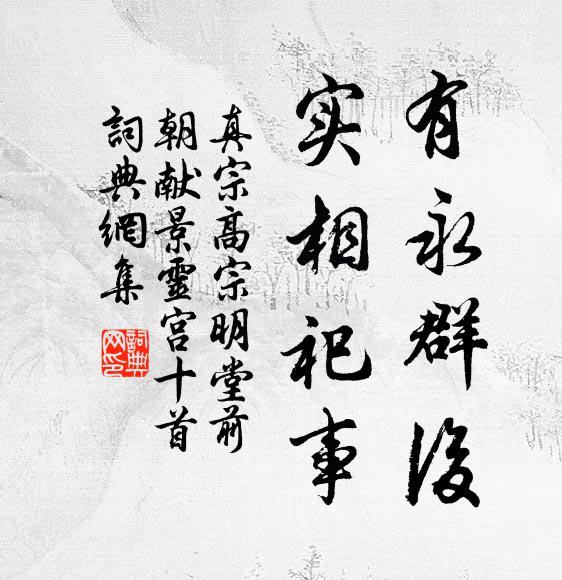 有永群後
实相祀事
真宗高宗明堂前
朝献景靈宫十首
詞典網集
詞典網印